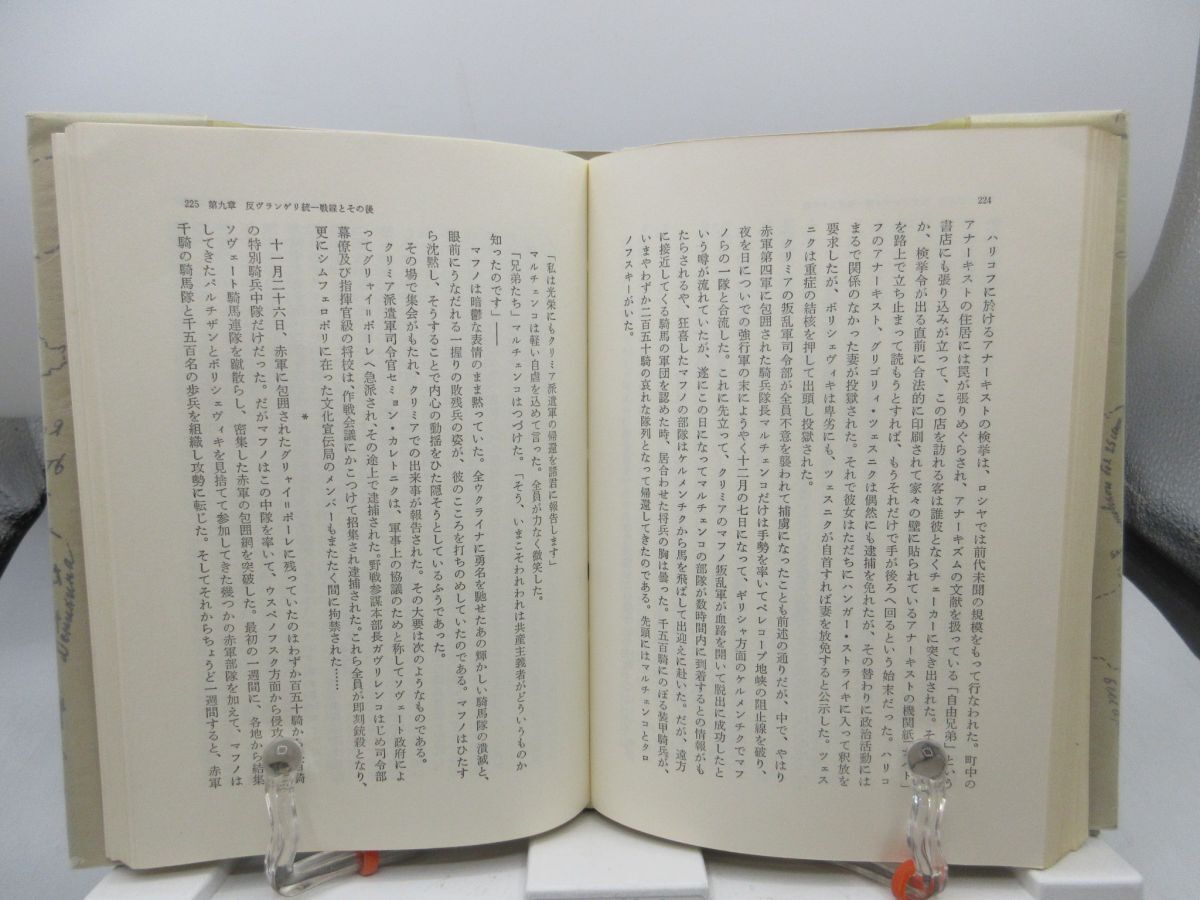 224
ハリコフに於けるアナーキストの検挙は、ロシヤでは前代未聞の規模をもって行なわれた。町中の
アナーキストの住居には罠が張りめぐらされ、アナーキズムの文献を扱っている「自由兄弟」という
書店にも張り込みが立って、この店を訪れる客は誰彼となくチェーカーに突き出された。そ
か、検挙令が出る直前に合法的に印刷されて家々の壁に貼られているアナーキストの機関紙
を路上で立ち止まって読もうとすれば、もうそれだけで手が後ろへ回るという始末だった。ハリコ
フのアナーキスト、グリゴリィ・ツェスニクは偶然にも逮捕を免れたが、その替わりに政治活動には
まるで関係のなかった妻が投獄された。それで彼女はただちにハンガー・ストライキに入って釈放を
要求したが、ボリシェヴィキは卑劣にも、ツェスニクが自首すれば妻を放免すると公示した。ツェス
ニクは重症の結核を押して出頭し投獄された。
クリミアの叛乱軍司令部が全員不意を襲われて捕虜になったことも前述の通りだが、中で、やはり
赤軍第四軍に包囲された騎兵隊長マルチェンコだけは手勢を率いてペレコープ地峡の阻止線を破り、
夜を日についでの強行軍の末にようやく十二月の七日になって、ギリシャ方面のケルメンチクでマフ
ノらの一隊と合流した。これに先立って、クリミアのマフノ叛乱軍が血路を開いて脱出に成功したと
いう噂が流れていたが、遂にこの日になってマルチェンコの部隊が数時間内に到着するとの情報がも
たらされるや、狂喜したマフノの部隊はケルメンチクから馬を飛ばして出迎えに赴いた。だが、遠方
に接近してくる騎馬の軍団を認めた時、居合わせた将兵の胸は曇った。千五百騎にのぼる装甲騎兵が、
いまやわずか二百五十騎の哀れな隊列となって帰還してきたのである。先頭にはマルチェンコとタロ
ノフスキーがいた。
225 第九章 反ヴランゲリ統一戦線とその後
「私は光栄にもクリミア派遣軍の帰還を諸君に報告します」
マルチェンコは軽い自虐を込めて言った。全員が力なく微笑した。
「兄弟たち」マルチェンコはつづけた。「そう、いまこそわれわれは共産主義者がどういうものか
知ったのです」――
マフノは暗鬱な表情のまま黙っていた。全ウクライナに勇名を馳せたあの輝かしい騎馬隊の潰滅と、
眼前にうなだれる一握りの敗残兵の姿が、彼のこころを打ちのめしていたのである。マフノはひたす
ら沈黙し、そうすることで内心の動揺をひた隠そうとしているふうであった。
その場で集会がもたれ、クリミアでの出来事が報告された。その大要は次のようなものである。
クリミア派遣軍司令官セミョン・カレトニクは、軍事上の協議のためと称してソヴェート政府によ
ってグリャイ＝ポーレへ急派され、その途上で逮捕された。野戦参謀本部長ガヴリレンコはじめ司令部
幕僚及び指揮官級の将校は、作戦会議にかこつけて招集され逮捕された。これら全員が即刻銃殺となり、
更にシムフェロポリに在った文化宣伝局のメンバーもまたたく間に拘禁された……
＊
十一月二十六日、赤軍に包囲されたグリャイ＝ポーレに残っていたのはわずか百五十騎か
の特別騎兵中隊だけだった。だがマフノはこの中隊を率いて、ウスペノフスク方面から侵攻
ソヴェート騎馬連隊を蹴散らし、密集した赤軍の包囲網を突破した。最初の一週間に、各地から結集
してきたパルチザンとボリシェヴィキを見捨てて参加してきた幾つかの赤軍部隊を加えて、マフノは
千騎の騎馬隊と千五百名の歩兵を組織し攻勢に転じた。そしてそれからちょうど一週間すると、赤軍